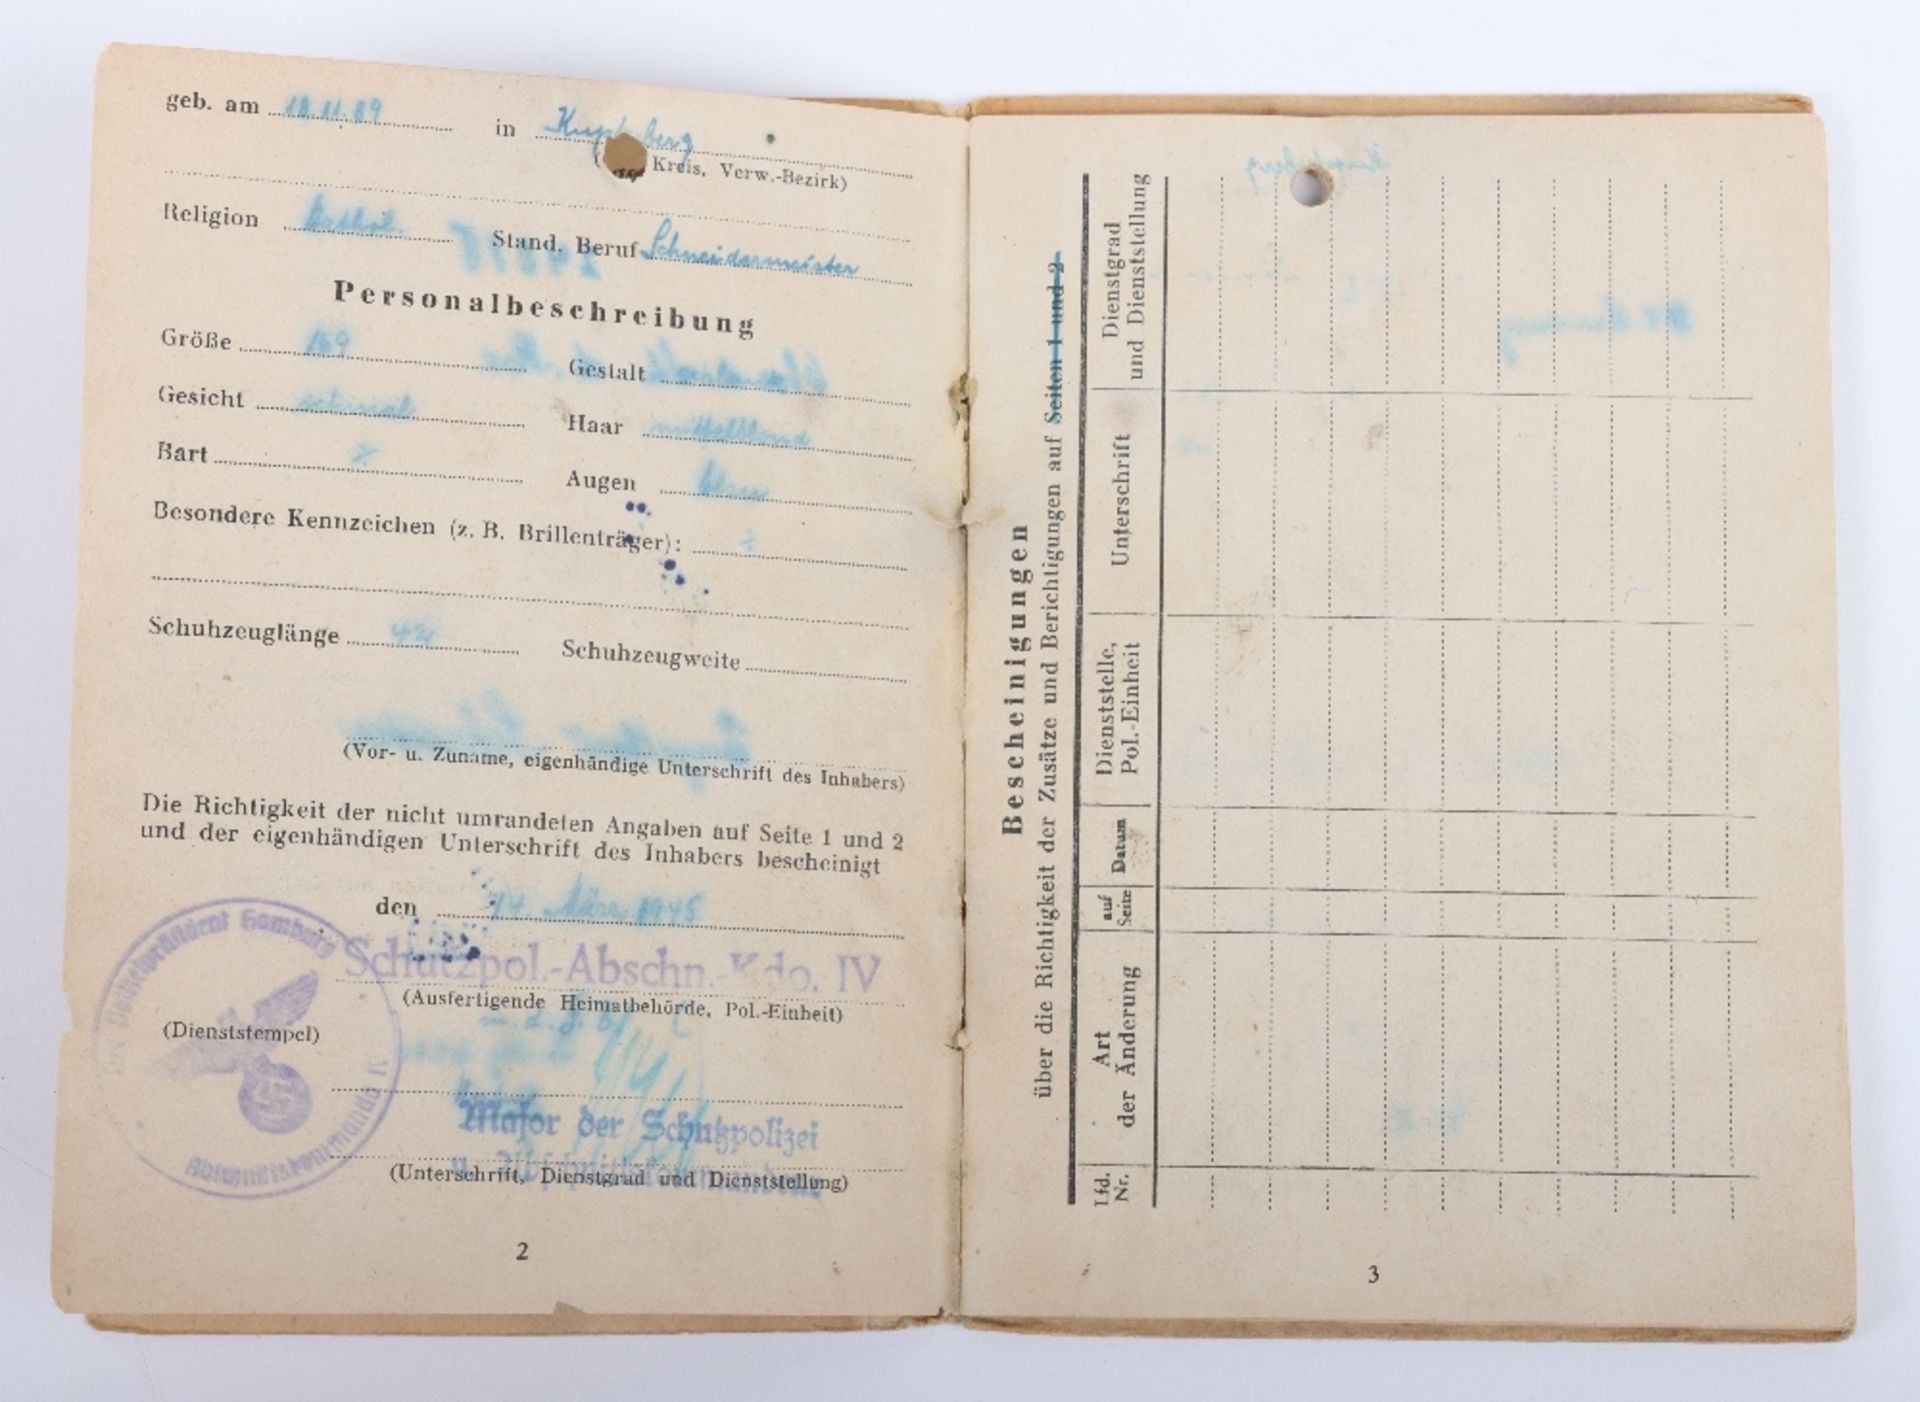 geb. am 18.11.89 in
Kreis, Verw.-Bezirk)
Religion kathol. Stand, Beruf Schneidermeister
Personalbeschreibung
Größe 169 Gestalt
Gesicht schmal Haar mittelblond
Bart ÷ Augen blau
Besondere Kennzeichen (z. B. Brillenträger): ÷
Schuhzeuglänge 42 Schuhzeugweite
(Vor- u. Zuname, eigenhändige Unterschrift des Inhabers)
Die Richtigkeit der nicht umrandeten Angaben auf Seite 1 und 2
und der eigenhändigen Unterschrift des Inhabers bescheinigt
den 14 März 1945
Schutzpol.-Abschn.-Kdo. IV
(Ausfertigende Heimatbehörde, Pol.-Einheit)
(Dienststempel)
Major der Schutzpolizei
(Unterschrift, Dienstgrad und Dienststellung)
Der Polizeipräsident Hamburg
Abschnittskommando IV
2
Bescheinigungen
über die Richtigkeit der Zusätze und Berichtigungen auf Seiten 1 und 2
Lfd. Nr.
Art der Änderung
auf Seite
Datum
Dienststelle, Pol.-Einheit
Unterschrift
Dienstgrad und Dienststellung
3